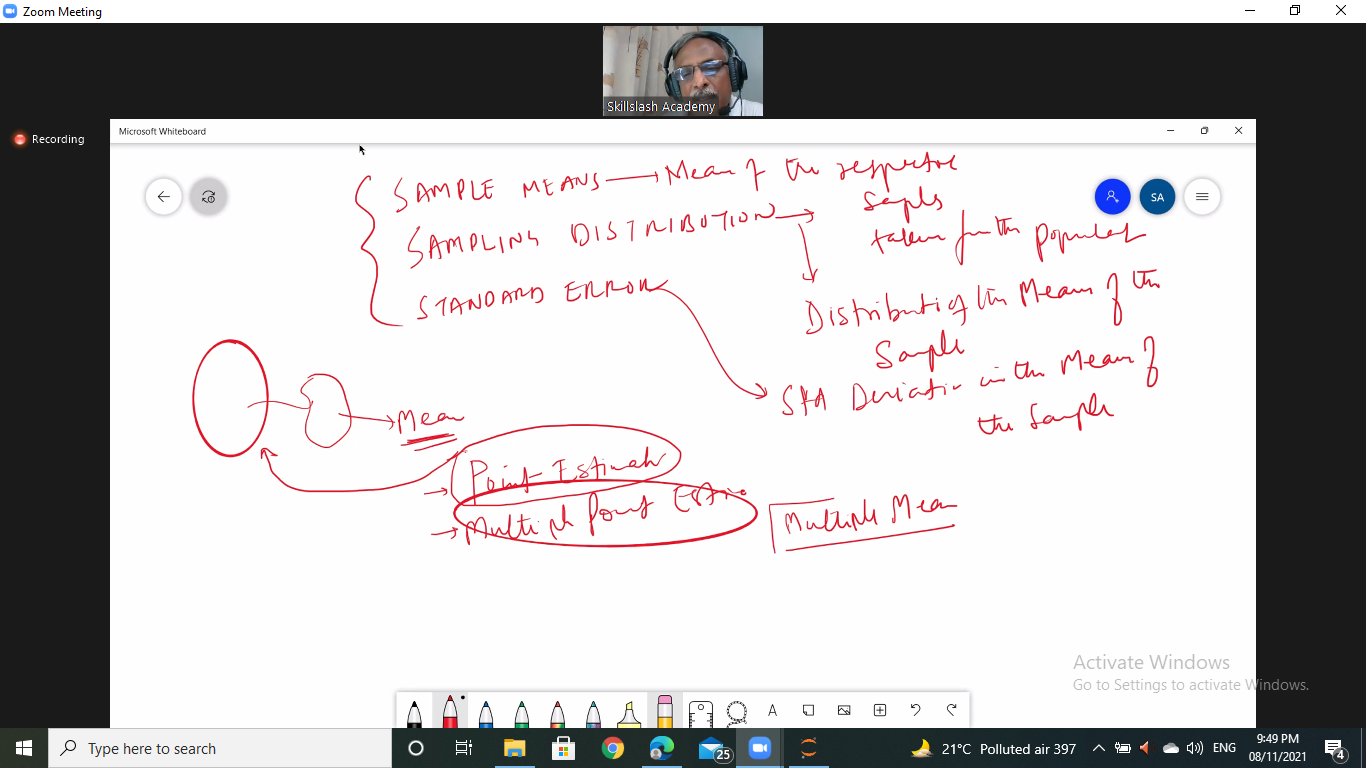 Zoom Meeting
Skillslash Academy
Recording
Microsoft Whiteboard
SAMPLE MEANS → Mean of the respective
Samples
taken from the populat
SAMPLING DISTRIBUTION →
Distributi of the Means of the
Sample
STANDARD ERROR
Std Deviation in the Mean of
the Sample
SA
Mean
Point Estimate
→ Multiple Point Estim
Multiple Mean
Activate Windows
Go to Settings to activate Windows.
A
Type here to search
25
21°C Polluted air 397
ENG
9:49 PM
08/11/2021
4